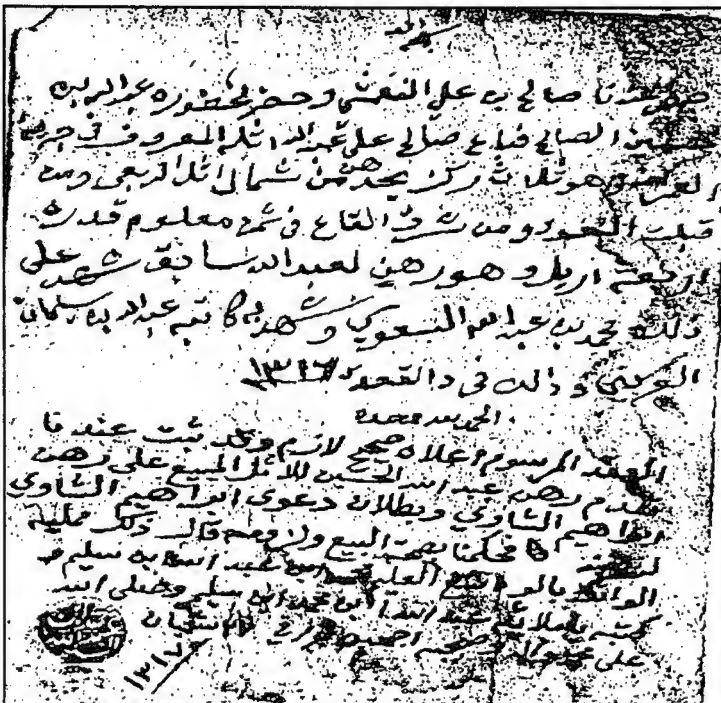 الحمد لله
حضر عندنا صالح بن علي النغيمشي وحضر لحضوره عبدالله بن
حسين الصالح فباع صالح على عبدالله اثله المعروف في
وهو ثلاث ركز يحدهن من شمال اثل الربعي ومن
قبلت النفود ومن شرق القاع في ثمن معلوم قدره
اربعة اريل وهو رهن لعبدالله سابق شهد على
ذلك محمد بن عبدالله وشهد به كاتبه عبدالله بن سليمان
العريني وذلك في ذا القعدة ١٣١٦
الحمد لله وحده
العقد المرسوم أعلاه صحيح لازم وقد ثبت عندنا
تقدم رهن عبد الله الحسين للاثل المبيع على رهن
ابراهيم الشاوي وبطلان دعوى ابراهيم الشاوي
فحكمنا بصحة البيع ولزومه قال ذلك ممليه
محمد بن عبد الله بن سليم
كتبه باملائه عبد الله ابن محمد ابن سليم وصلى الله
على محمد وآله وصحبه اجمعين
١٣١٧